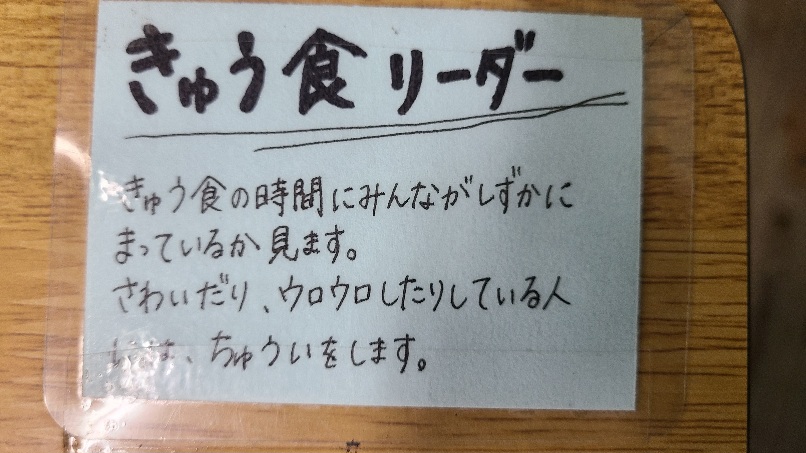 きゅう食リーダー
きゅう食の時間にみんながしずかに
まっているか見ます。
さわいだり、ウロウロしたりしている人
には、ちゅういをします。